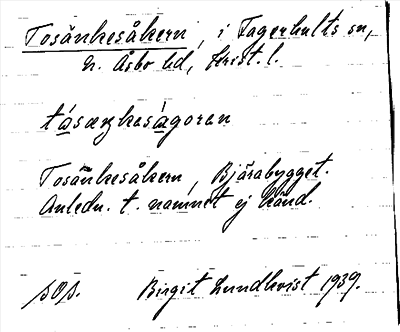 Tosänkesåkern, i Fagerhults sn,
N. Åsbo hd, Krist. l.
tásæŋkesàgoren
Tosänkesåkern, Bjärabygget.
Anledn. t. namnet ej känd.
Birgit Lundkvist 1939.